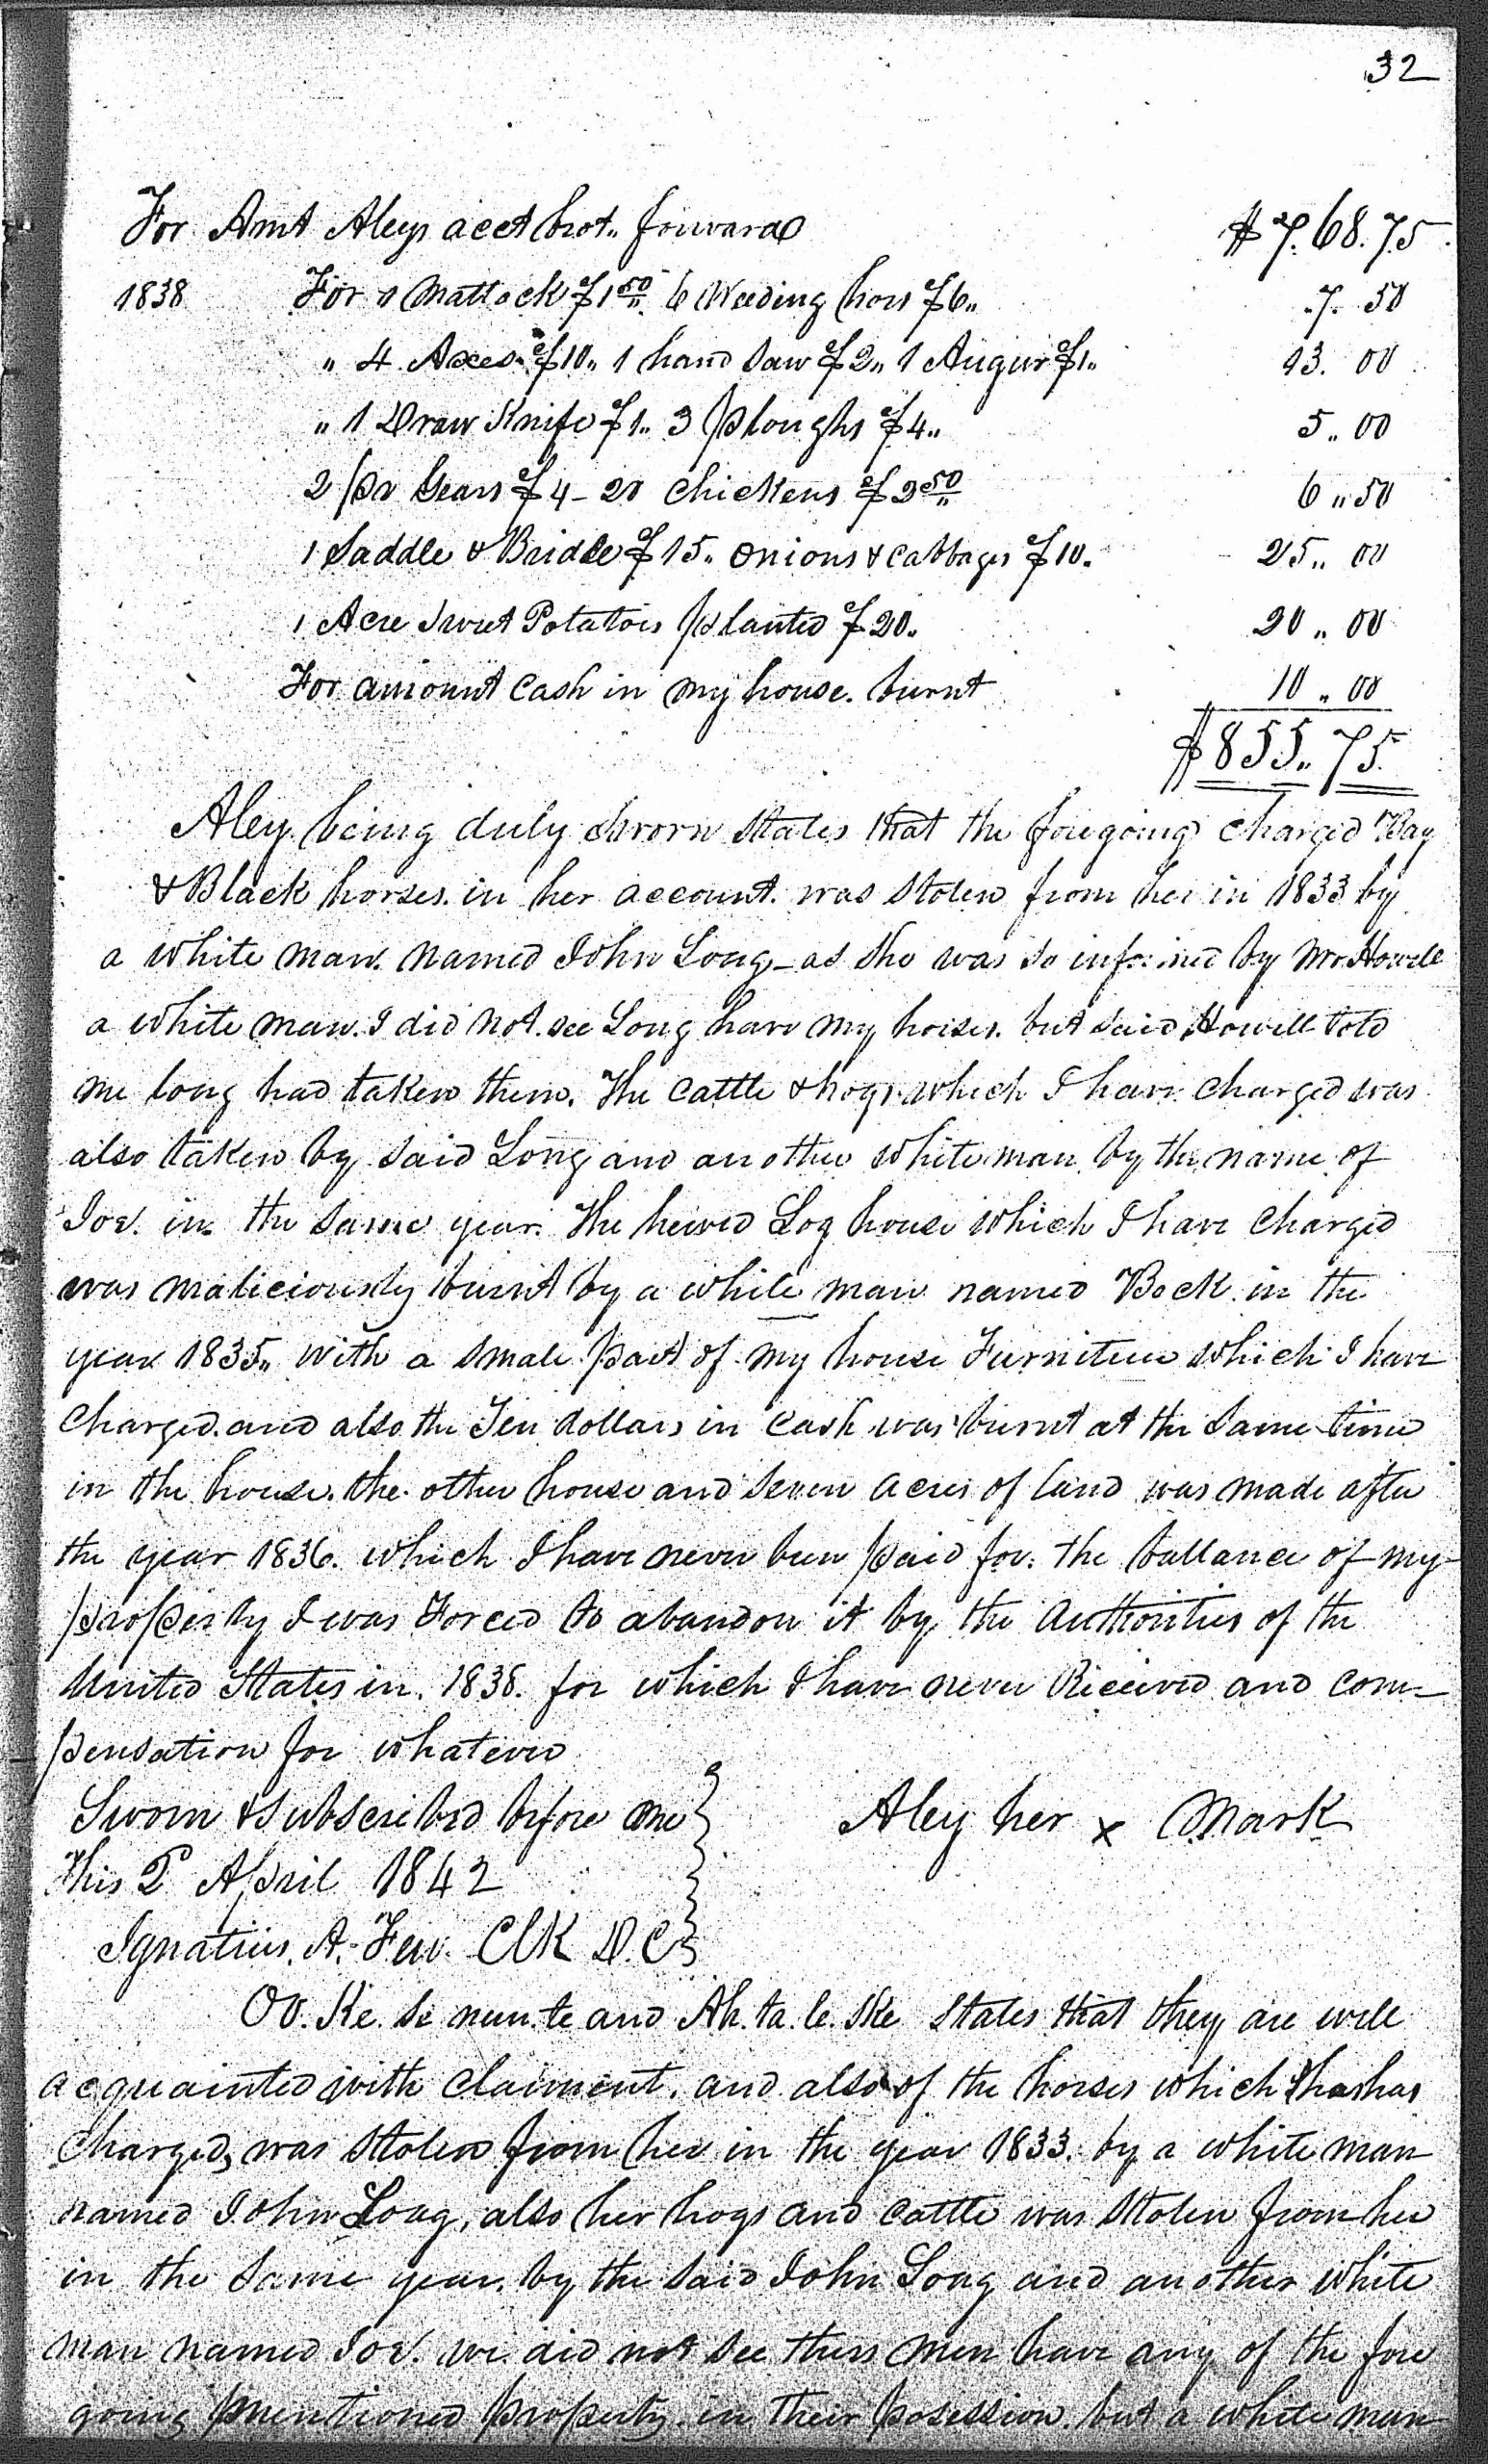 32
For Amt Aleys acct brot.. forward $7.68.75
1838 For 1 Mattock $1 50 6 Weeding hoes $6.. 7. 50
" 4 Axes $10.. 1 hand Saw $2.. 1 Augur $1.. 13. 00
" 1 Draw Knife $1.. 3 ploughs $4.. 5.. 00
2 pr Gears $4 - 20 Chickens $2 50 6 .. 50
1 Saddle & Bridle $15.. Onions & Cabbages $10.. 25.. 00
1 Acre Sweet Potatoes planted $20.. 20 .. 00
For amount Cash in my house. burnt 10 .. 00
$855.. 75
Aley being duly sworn States that the foregoing charged Bay
& Black horses. in her account. was stolen from her in 1833 by
a white man. named John Long - as she was so informed by Mr. Howell
a white man. I did not see Long have my horses. but said Howell told
me long had taken them. The Cattle & hogs which I have charged was
also taken by said Long and another white man by the name of
Joe. in the same year. The hewed Log house which I have charged
was maliciously burnt by a white man named Bock in the
year 1835.. with a small part of my house Furniture which I have
charged. and also the Ten dollars in Cash was burnt at the same time
in the house. the other house and seven acres of land was made after
the year 1836. which I have never been paid for. the ballance of my
property I was Forced to abandon it by the Authorities of the
United States in. 1838. for which I have never Received and com-
pensation for whatever
Sworn & subscribed before me } Aley her x Mark
This 2 April 1842
Ignatius. A. Few. Clk D. C
Oo. Ke. se nun. te and Ah. ta. le. ske States that they are well
acquainted with claiment. and also of the horses which has
charged, was stolen from her in the year 1833. by a white man
named John Long, also her hogs and cattle was stolen from her
in the same year. by the said John Long and another white
man named Joe. we did not see thess men have any of the fore
going mentioned property in their posession. but a white man